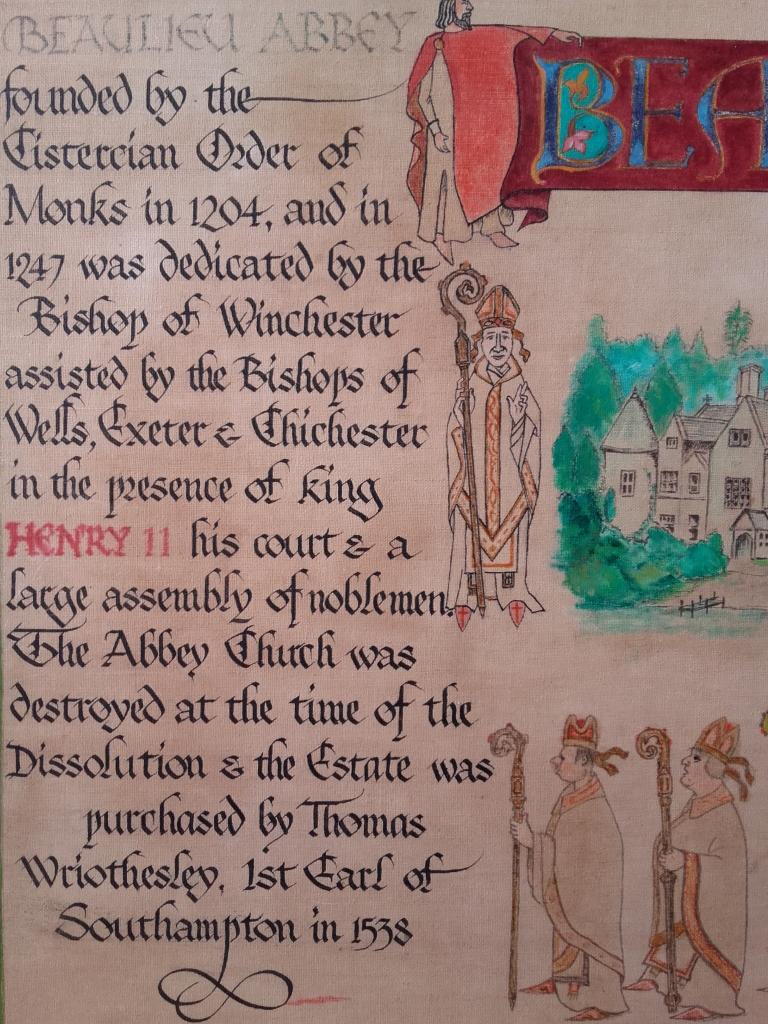 BEAULIEU ABBEY
founded by the
Cistercian Order of
Monks in 1204, and in
1247 was dedicated by the
Bishop of Winchester
assisted by the Bishops of
Wells, Exeter & Chichester
in the presence of king
HENRY 11 his court & a
large assembly of noblemen.
The Abbey Church was
destroyed at the time of the
Dissolution & the Estate was
purchased by Thomas
Wriothesley, 1st Earl of
Southampton in 1538
BEA